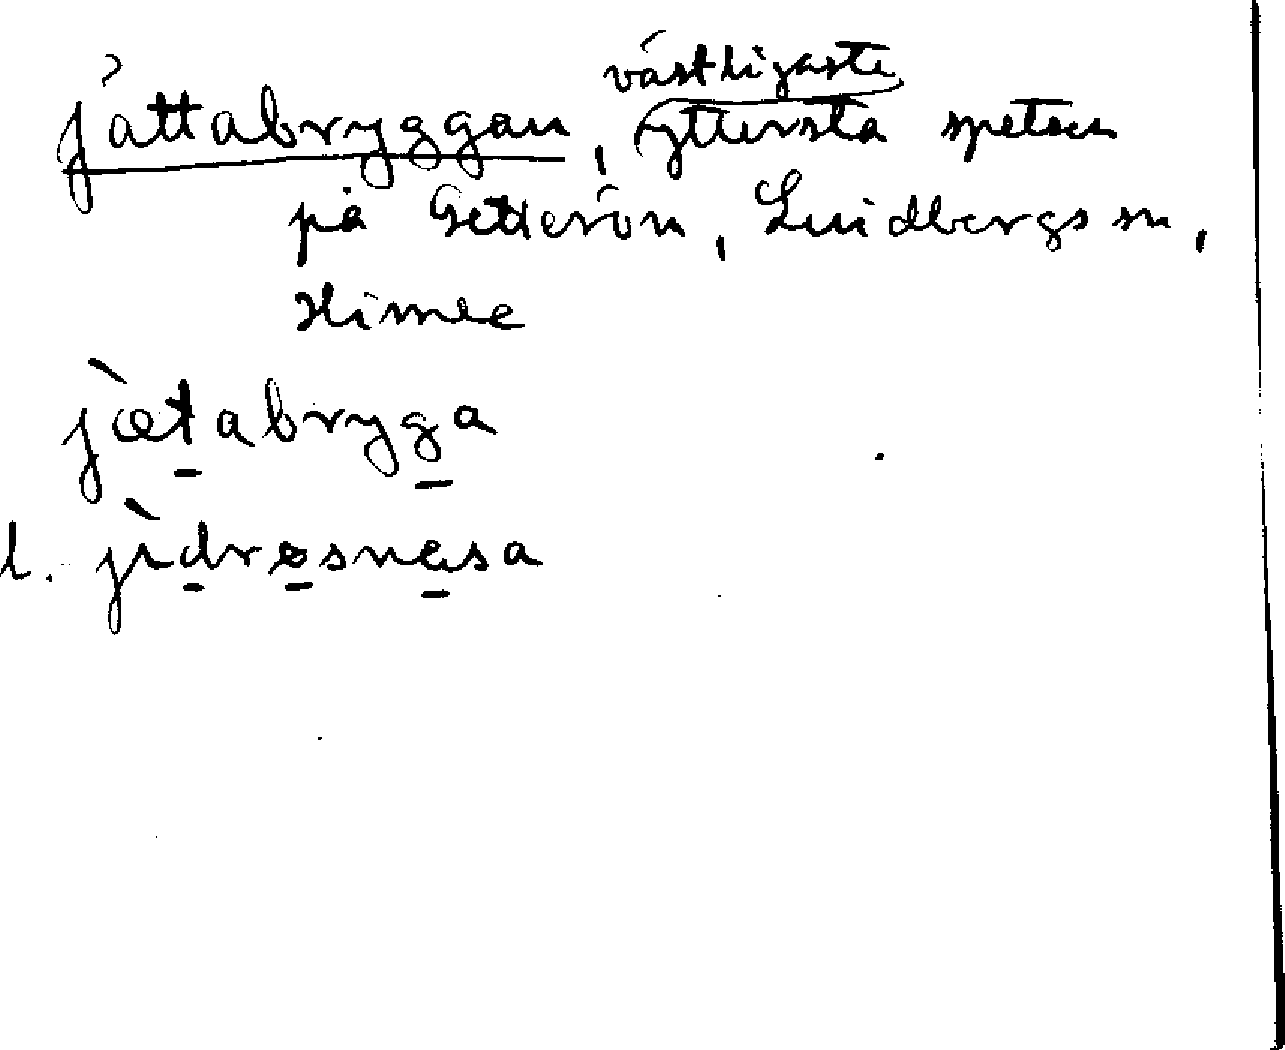 västligaste
jättabryggan, yttersta spetsen
på Getterön, Lindbergs sn,
Himle
jætabryga
l. jìdrøsnæsa